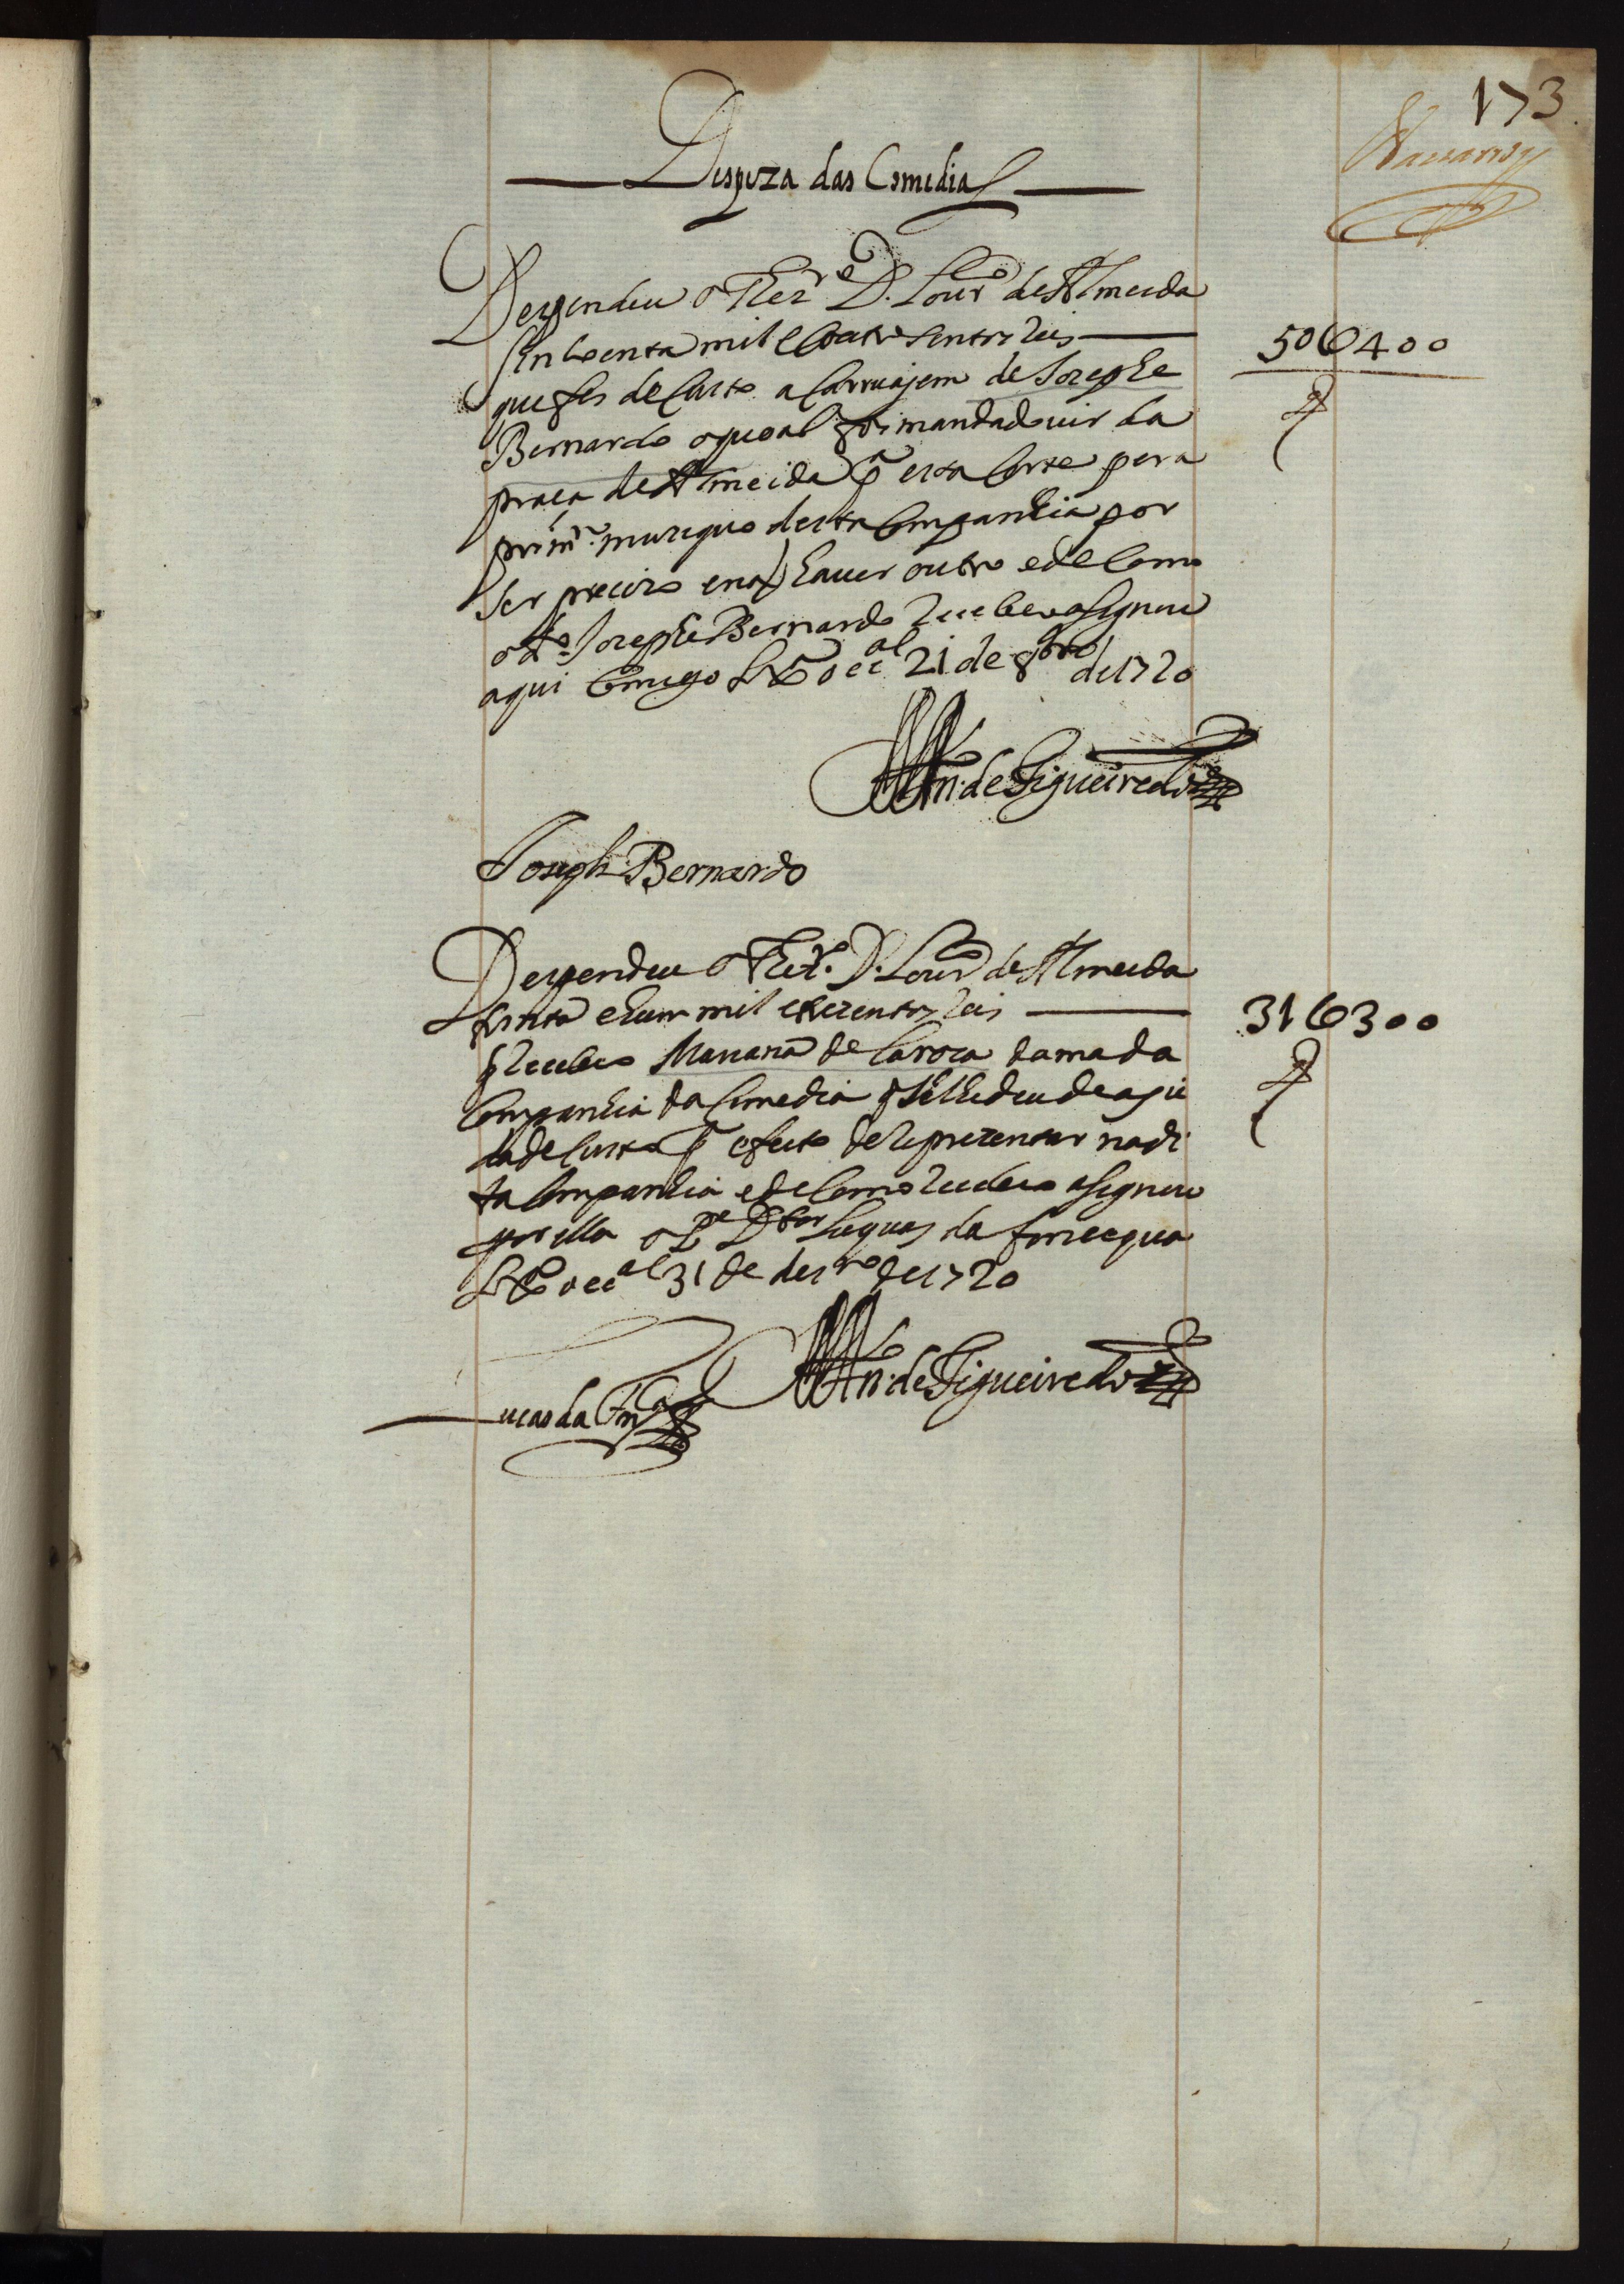 173
Navarro
Despeza das Comedias
Despendeu o Thezrº D. Lourº de Almeida
sincoenta mil e coatrosentos reis
50$400
que fes de custo a carruajem de Jozephe
Bernardo o quoal foi mandado vir da
praça de Almeida pª esta Corte pera
primrº muziquo desta Companhia por
ser precizo e naõ haver outro e de como
o dº Jozephe Bernardo recebeo asignou
aqui Comigo Lxª occªl 21 de 8bro de 1720
Mn. de Figueiredo
Joseph Bernardo
Despendeu o Thezrº. D. Lourº de Almeida
trinta e hum mil e trezentos reis
31$300
q recebeo Marianã de Caroza dama da
Companhia da Comedia q se lhe deu de aju
da de custo pª efeito de reprezentar na di
ta Companhia e de como recebeo asignou
por illa o Pe Dtor Luquas da fonsequa
Lxª occªl 31 de dezrº de 1720
Mn. de Figueiredo
Lucas da Fonᶜª